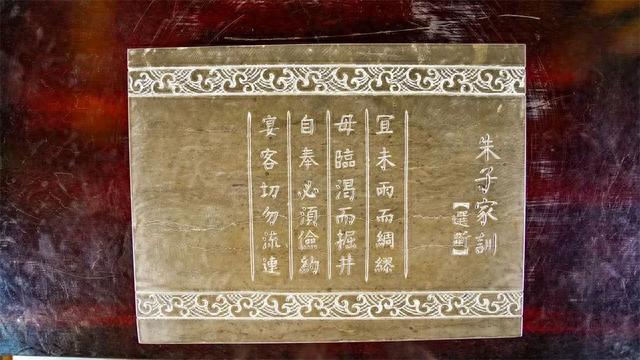 朱子家訓
【選斷】
宜未雨而綢繆
毋臨渴而掘井
自奉必須儉約
宴客切勿流連